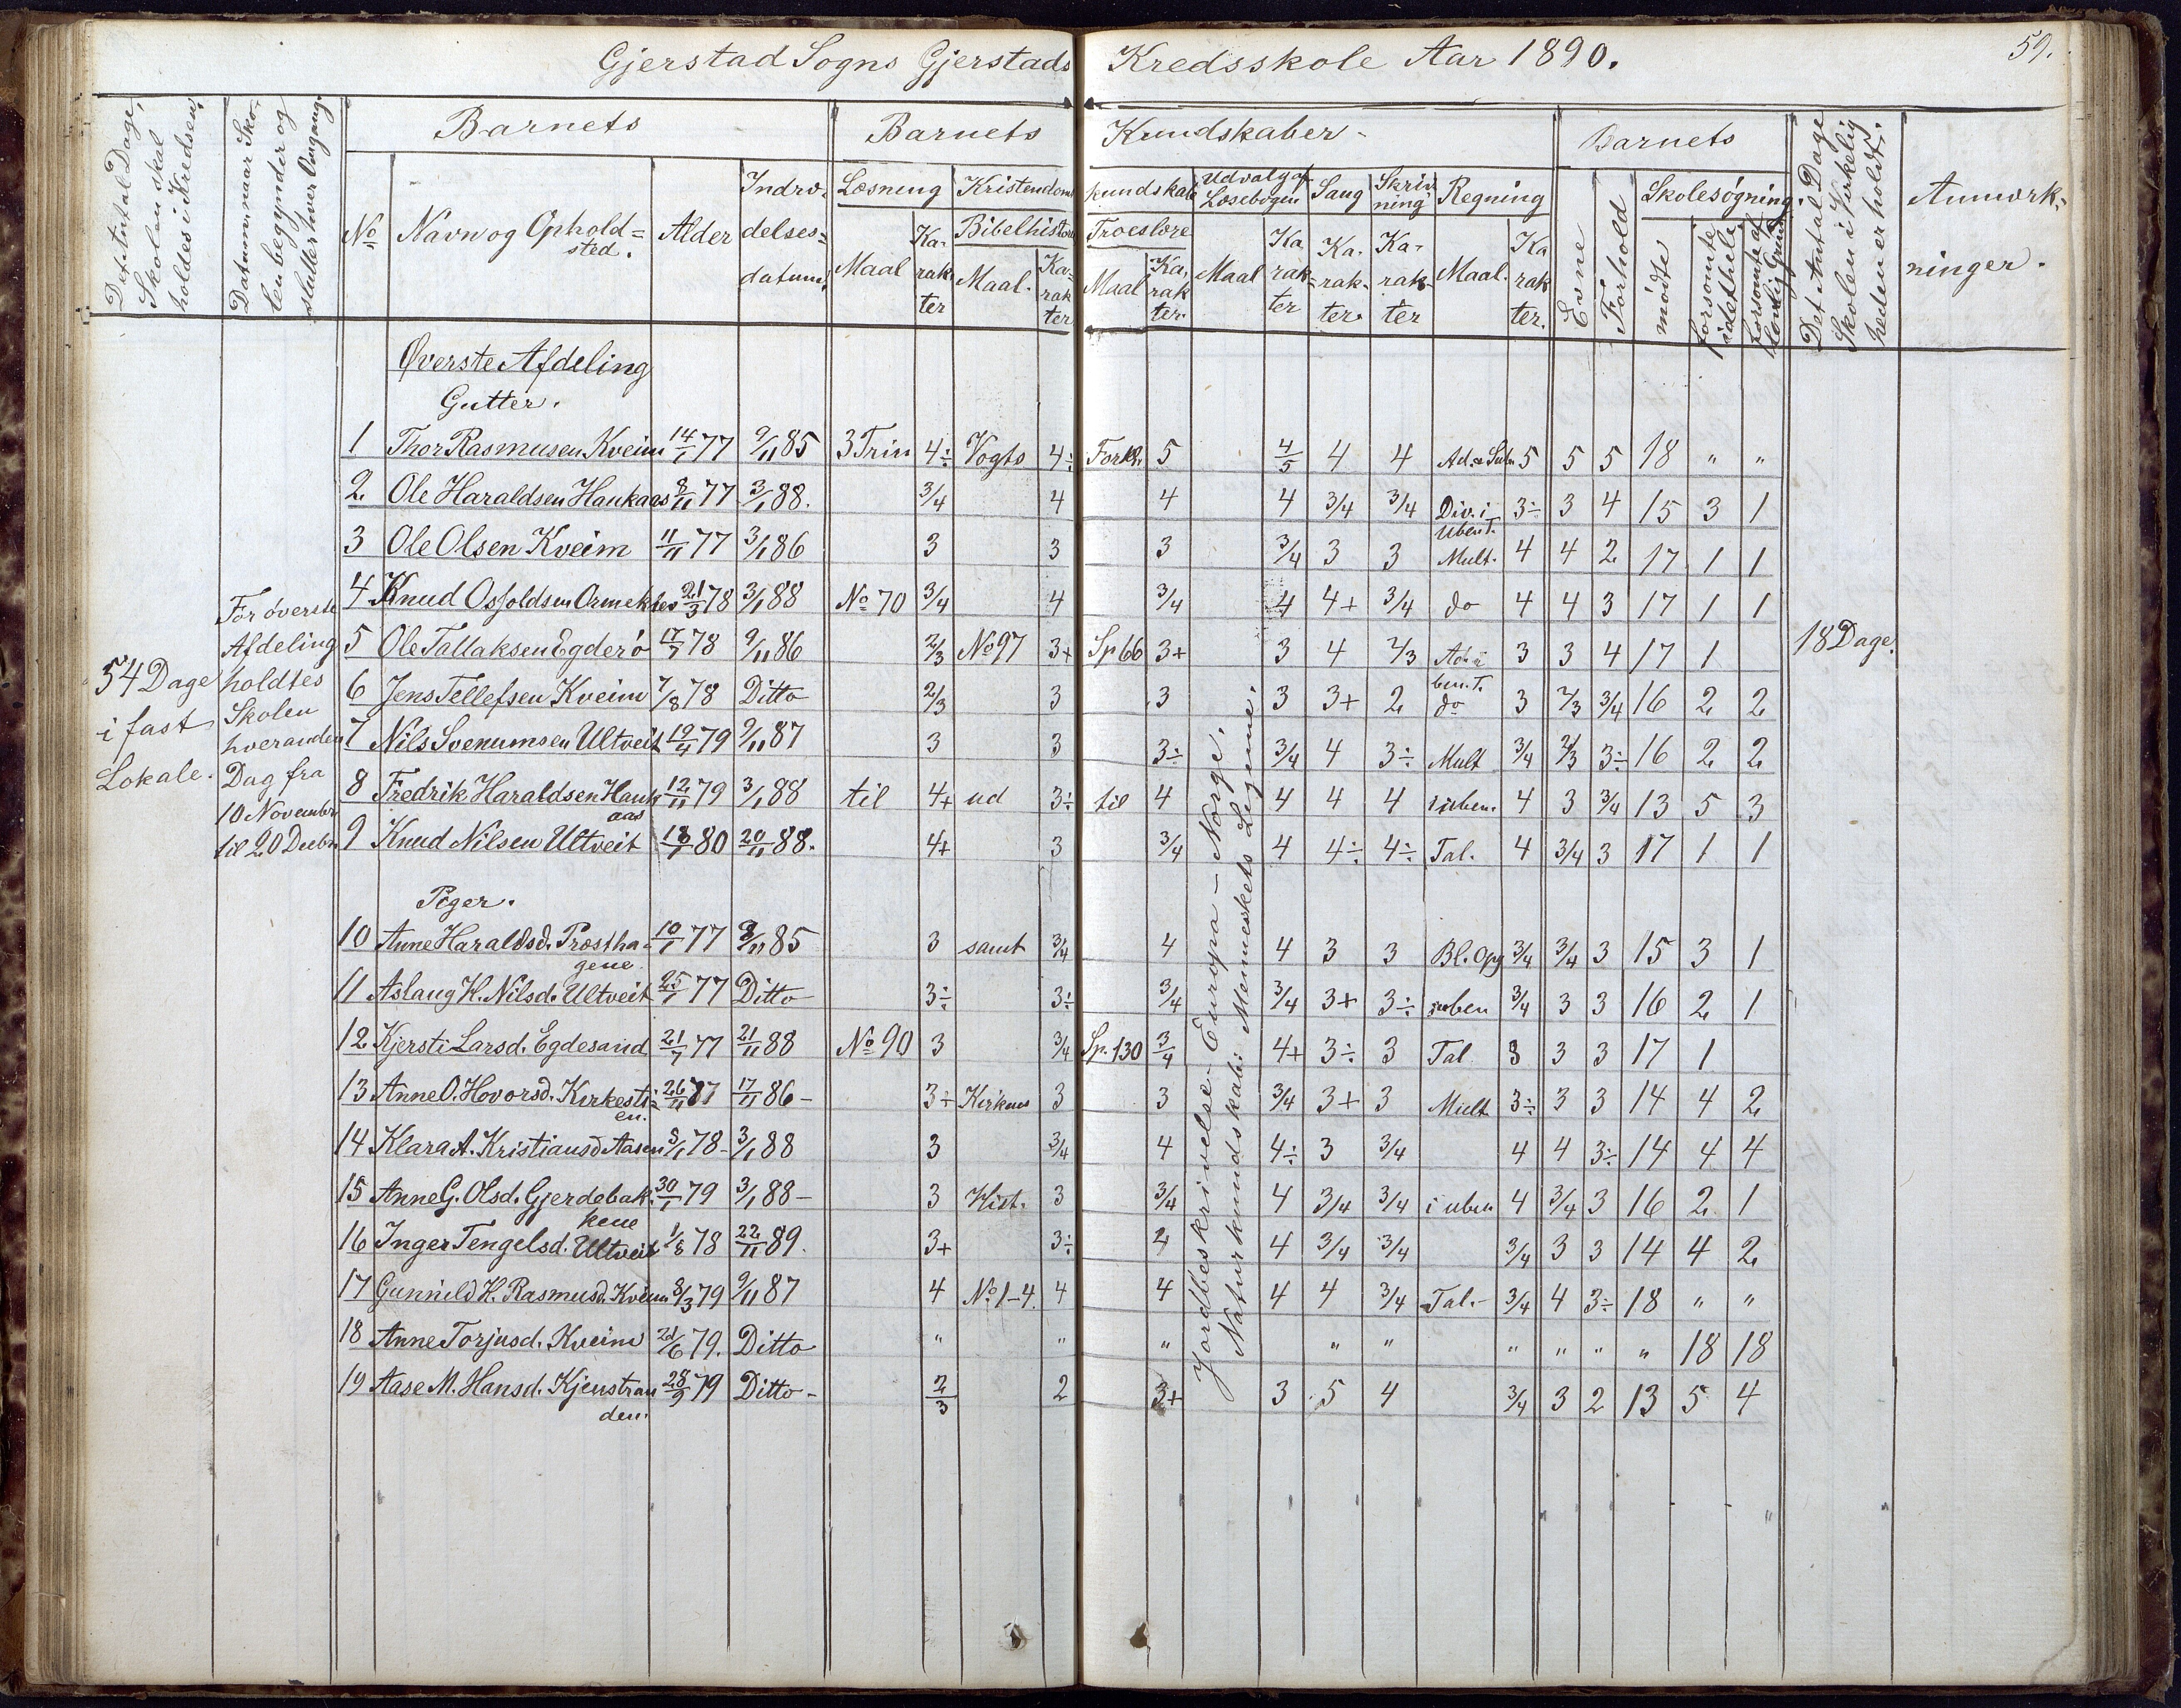 Gjerstad Sogns Gjerstads Kredsskole Aar 1890. 59.
Det Antal Dage, Skolen skal holdes i Kredsen.
Datum naar Skolen begynder og slutter hver Omgang.
Barnets Barnets Kundskaber - Barnets
No Navn og Opholdsted. Alder Indtrædelsesdatum.
Læsning Maal Karakter
Kristendomskundskab
Bibelhistorie Maal. Karakter
Troeslære Maal Karakter.
Udvalg af Læsebogen Maal Karakter
Sang Karakter
Skrivning Karakter
Regning Maal. Karakter.
Evne Forhold
Skolesøgning. mødte forsømte i det hele forsømte af lovlig Grund
Det Antal Dage Skolen i Virkeligheden er holdt.
Anmærkninger.
Øverste Afdeling
Gutter.
1 Thor Rasmusen Kveim 14/1 77 9/11 85 3 Trin 4÷ Vogts 4÷ Forkl. 5 4/5 4 4 Ad. Sub. 5 5 5 18 " "
2 Ole Haraldsen Haukaas 8/11 77 3/1 88. 3/4 4 4 4 3/4 3/4 Div. i 3÷ 3 4 15 3 1
uben T.
3 Ole Olsen Kveim 11/11 77 3/1 86 3 3 3 3/4 3 3 Mult. 4 4 2 17 1 1
4 Knud Osfoldsen 21/3 78 3/1 88 No 70 3/4 4 3/4 4 4+ 3/4 do 4 4 3 17 1 1
5 Ole Tallaksen Egderö 17/7 78 9/11 86 2/3 No 97 3+ Sp 66 3+ 3 4 2/3 Ad. i 3 3 4 17 1
ben. T.
6 Jens Tellefsen Kveim 7/8 78 Ditto 2/3 3 3 3 3+ 2 do 3 2/3 3/4 16 2 2
7 Nils Svenumsen Ultveit 19/4 79 9/11 87 3 3 3÷ 3/4 4 3÷ Mult 3/4 2/3 3÷ 16 2 2
8 Fredrik Haraldsen Haukaas 12/11 79 3/1 88 til 4+ ud 3÷ til 4 4 4 4 i uben. 4 3 3/4 13 5 3
9 Knud Nilsen Ultveit 80 20/11 88. 4+ 3 3/4 4 4÷ 4÷ Tal. 4 3/4 3 17 1 1
For øverste
Afdeling
holdtes
Skolen
hveranden
Dag fra
10 November
til 20 Decbr.
54 Dage
i fast
Lokale.
18 Dage.
Piger.
10 Anne Haraldsd. Præsthagene 10/1 77 85 3 samt 3/4 4 4 3 3 Bl. Opg 3/4 3/4 3 15 3 1
11 Aslaug K. Nilsd. Ultveit 25/1 77 Ditto 3÷ 3÷ 3/4 3/4 3+ 3÷ i uben 3/4 3 3 16 2 1
12 Kjersti Larsd. Egdesand 21/7 77 21/11 88 No 90 3 3/4 Sp. 130 3/4 4+ 3÷ 3 Tal 3 3 3 17 1
13 Anne O. Hovorsd. Kirkestien. 26/11 17/11 86 - 3÷ Kirkens 3 3 3/4 3+ 3 Mult 3÷ 3 3 14 4 2
14 Klara A. Kristiansd Aasen 78 - 3/1 88 3 3/4 4 4÷ 3 3/4 4 4 3÷ 14 4 4
15 Anne G. Olsd. Gjerdebakkene 30/1 79 3/1 88 - 3 Hist. 3 3/4 4 3/4 3/4 i uben 4 3/4 3 16 2 1
16 Inger Tengelsd. Ultveit 1/8 78 22/11 89. 3+ 3÷ 4 3/4 3/4 3/4 3 3 14 4 2
17 Gunnild K. Rasmusd. Kveim 8/3 79 9/11 87 4 No 1-4. 4 4 4 4 3/4 Tal. - 3/4 4 3÷ 18 " "
18 Anne Torjusd. Kveim 79. Ditto " " " " " " " " " 18 18
19 Aase M. Hansd. Kjenstranden. 28/9 79 Ditto - 2/3 2 3+ 3 5 4 3/4 3 2 13 5 4
Jordbeskrivelse - Europa - Norge.
Naturkundskab: Menneskets Legeme.